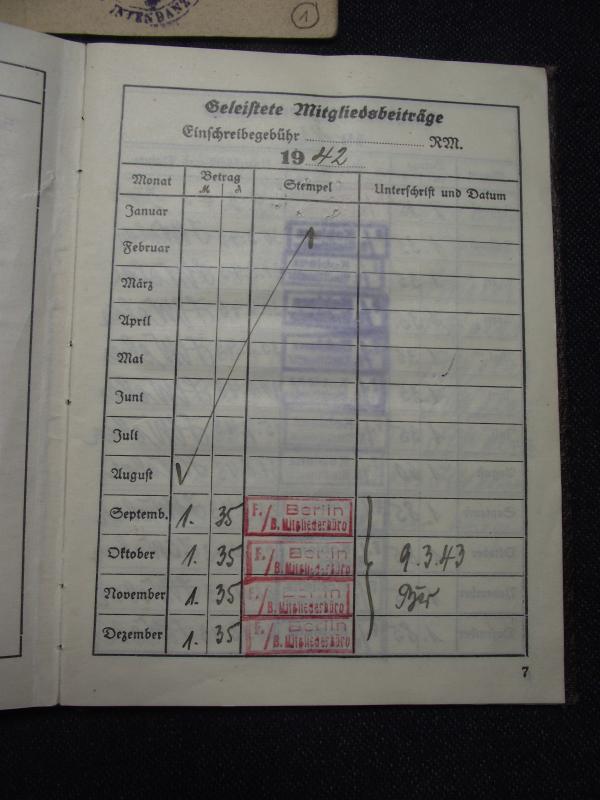 INTENDANZ
1
Geleistete Mitgliedsbeiträge
Einschreibegebühr RM.
1942
Monat Betrag Stempel Unterschrift und Datum
M
Januar
Februar
März
April
Mai
Juni
Juli
August
Septemb. 1. 35 F./ Berlin
B. Mitgliederbüro
Oktober 1. 35 F./ Berlin
B. Mitgliederbüro 9.3.43
November 1. 35 F./ Berlin
B. Mitgliederbüro
Dezember 1. 35 F./ Berlin
B. Mitgliederbüro
7